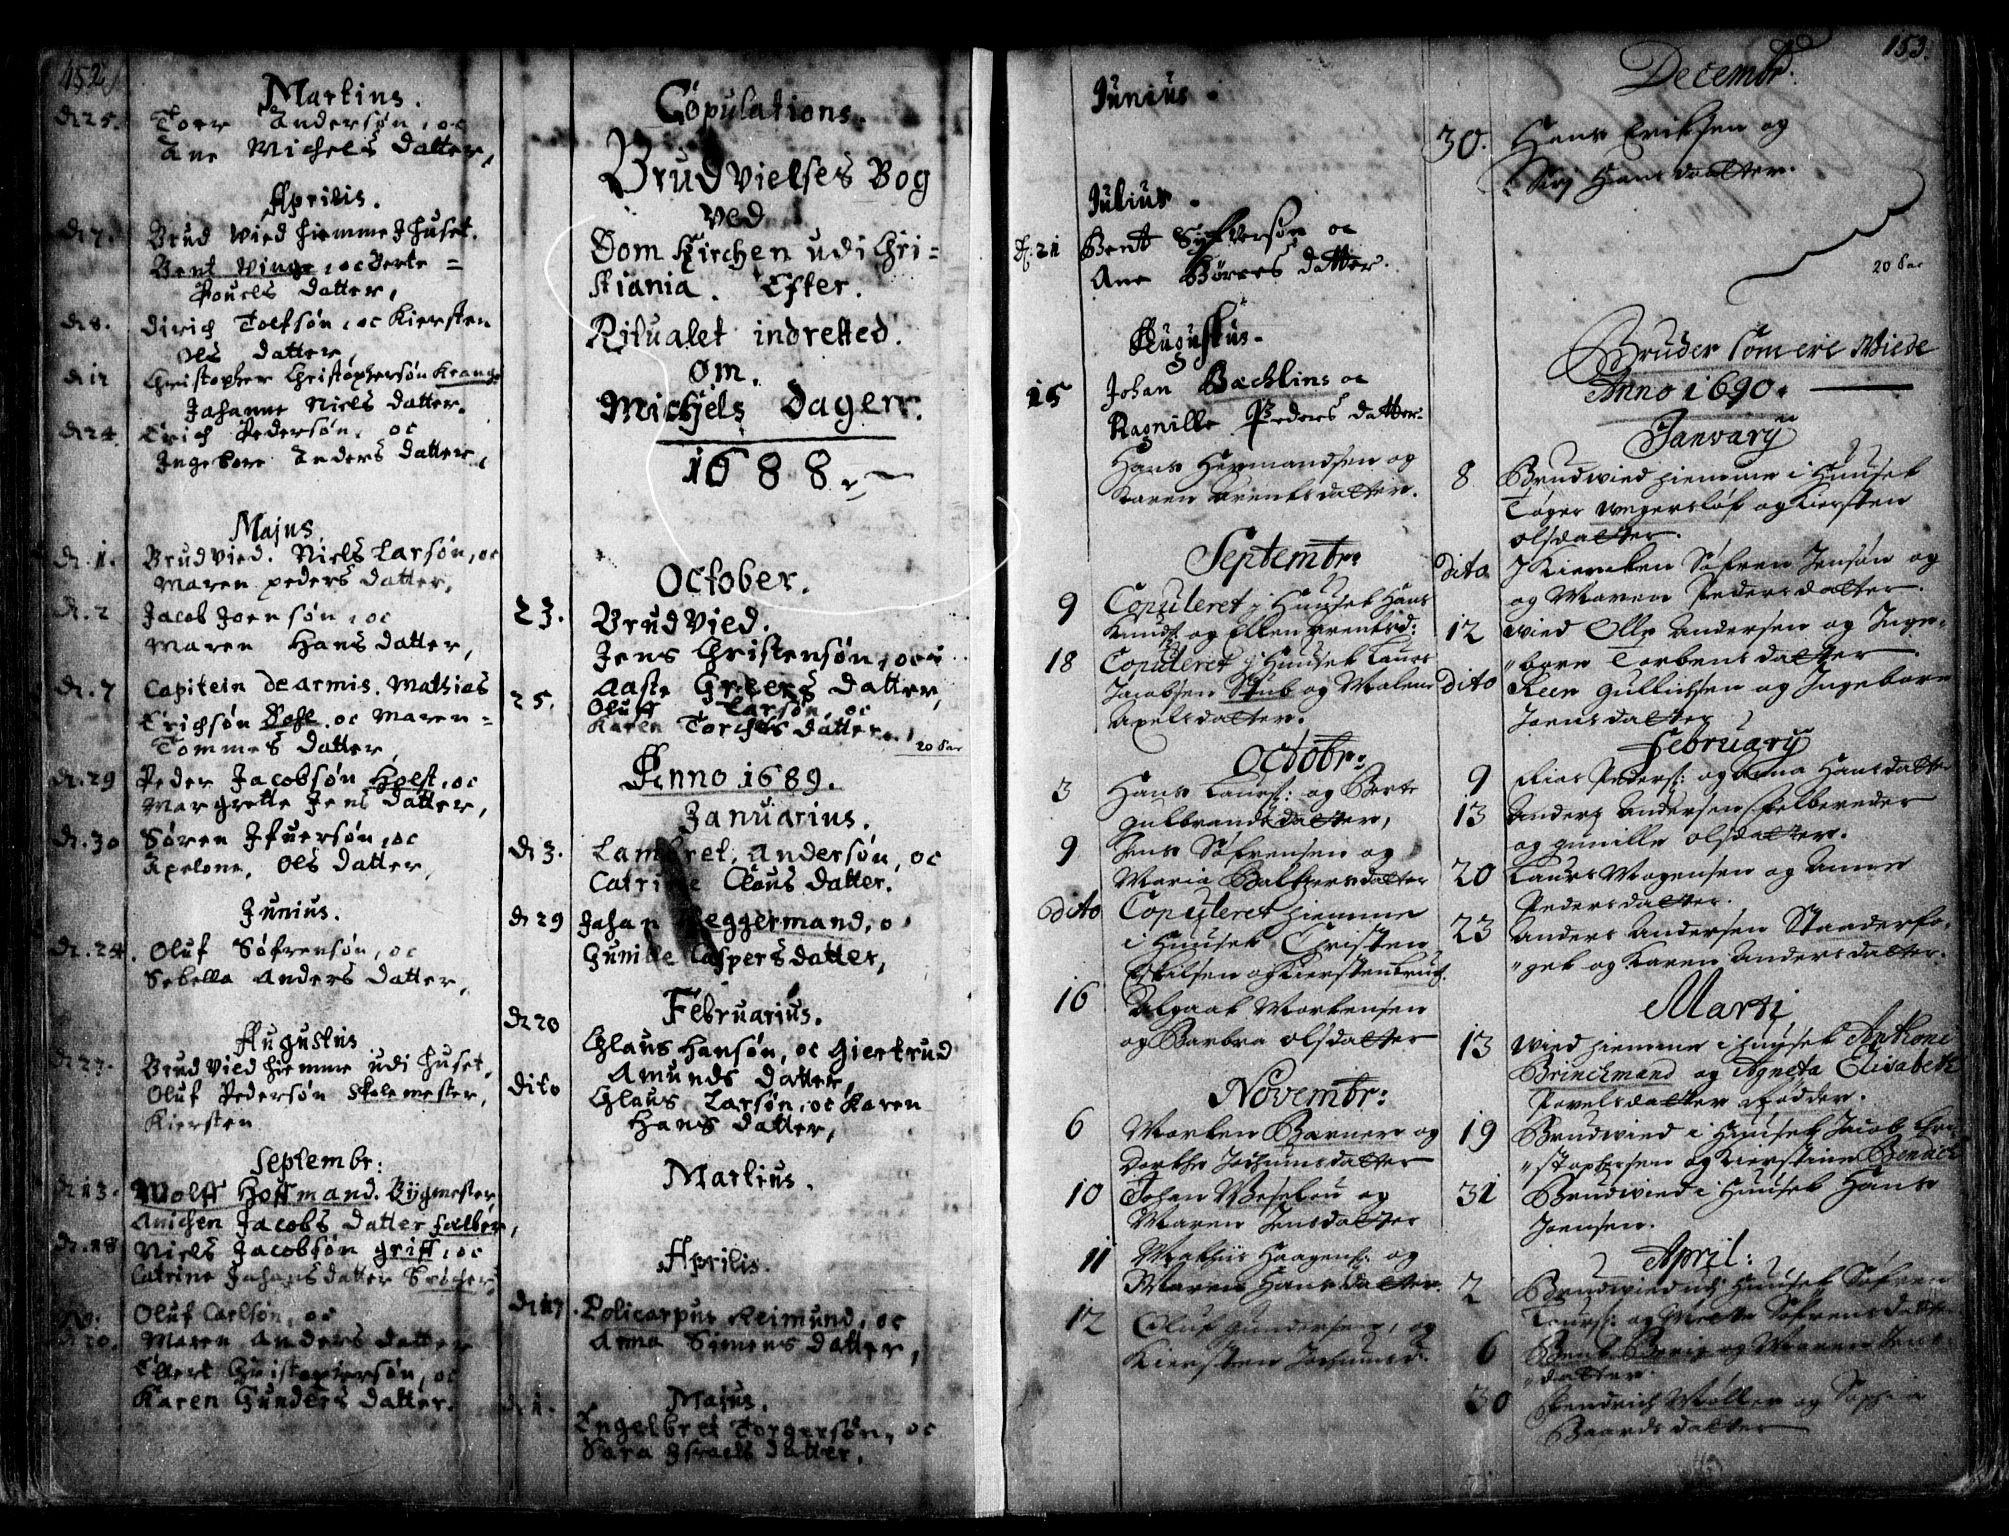 152
Martius.
d 25. Toer Andersøn, oc
Ane Michels datter,
Aprilis.
d 7. Brud Wied hiemme J huset.
Bent Winge, oc Berte =
Pouels datter,
d 8. Dirich Tolfsøn, oc Kiersten
Ols datter,
d 12 Christopher Christophersøn Krang
Johanne Niels datter.
d 24. Erich Pedersøn, oc
Ingebore Anders datter,
Majus
d. 1. Brudvied. Niels Larsøn, oc
Maren peders datter,
d. 2 Jacob Joensøn, oc
Maren Hans datter,
d. 7 Capitein de armis. Mathias
Erichsøn Dahl oc Maren =
Tommes datter,
d. 29 Peder Jacobsøn Holst, oc
Margrette Jens datter,
d. 30 Søren Jfuersøn, oc
Apelone, Ols datter,
Junius.
d. 24. Oluf Søfrensøn, oc
Sebella Anders datter,
Augustus
d 22. Brudvied hiemme udi huset.
Oluf Pedersøn Skolemester,
Kiersten
Septembr:
d 13. Wolff Hoffmand. Bygmester,
Anichen Jacobs datter
d. 18 Niels Jacobsøn grift, oc
Catrine Johans datter
Oluf Carlsøn, oc
d 20. Maren Anders datter
Ebert Christophersøn, oc
Karen Gunders datter.
Copulations.
Brudvielses Bog
ved
Dom Kirchen udi Chri=
stiania. Efter.
Ritualet indretted.
om.
Michjels Dagen.
1688.
October.
23. Brudvied.
Jens Christensøn, oc
Aaste Greers datter,
25. Oluff Larsøn, oc
Karen Torchels datter.
20 Par
Anno 1689.
Januarius.
d 3. Lambret, Andersøn, oc
Catrine Clous datter.
d 29 Johan Beggermand, oc
Gunille Caspers datter,
Februarius.
d 20 Claus Hansøn, oc Giertrud
Amunds datter,
dito Claus Larsøn, oc Karen
Hans datter,
Martius.
Aprilis.
d 17. Policarpus Reimund, oc
Anna Simens datter,
Majus.
d 1. Engelbret Torgersøn, oc
Sara Jsraels datter.
153.
Junius.
Julius.
d. 21 Bendt Syfversøn oc
Ane Børres datter.
Augustus.
15 Johan Bachlins oc
Ragnille Peders datter.
Hans Hermandsen og
Karen Arentsdatter.
Septembr:
9 Copuleret i Huuset Hans
Knuds: og Ellen Arentsd:
18 Copuleret i Huuset Laurs
Jacobsen Stub og Malene
Axelsdatter.
Octobr:
3 Hans Laurs: og Berte
Gulbrandsdatter,
9 Jens Søfrensen og
Maria Baltzersdatter
dito Copuleret hiemme
i Huuset Christen
Eskilsen og Kiersten
16 Aslaak Mortensen
og Barbra Olsdatter
Novembr:
6 Morten Barner og
Dorthe Jochumsdatter
10 Johan Weselou og
Maren Jensdatter
11 Mathiis Haagens: og
Maren Hansdatter.
12 Oluf Gundersen, og
Kiersten Jochumsd:
Decembr:
30. Hans Eriksen og
Siri Hansdaatter.
20 Par
Bruder som ere Wiede
Anno 1690.
January
8 Brudwied hiemme i Huuset
Tøger Wegersløf og Kiersten
Olsdatter.
dito J Kiercken Søfren Jensøn og
og Maren Pedersdatter.
12 Wied Olle Andersen og Inge=
"borr Torbensdatter
dito Reer Gullichsen og Ingeborr
Joensdatter
February
9 Elias Peders: og Anna Hansdatter
13 Anders Andersen Felbereder
og Gunille Olsdatter.
20 Laurs Mogensen og Anne
Pedersdatter.
23 Anders Andersen Standerfo=
"get og Karen Andersdatter.
Marti
13 Wied hiemme i huuset Anthoni
Brinckmand og Agneta Elisabeth
Povelsdatter Rødder.
19 Brudwied i Huuset Jacob Chri=
"stophersen og Kierstine Bennich
31 Brudwied i Huuset Hans
Joensen.
April:
2 Brudwied udj Huuset Søfren
Laurs: og Mette Søfrensdatter
6 Bent Berig og Maren Jens=
"datter.
30 Hendrich Møller og Sophia
Baardsdatter